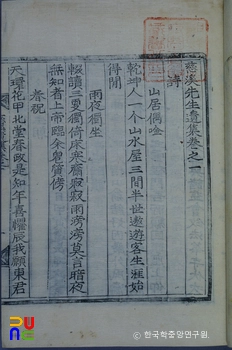 溪先生遺集卷之一
詩
山居偶唫
乾坤人一个山水屋三間半世遨遊客生涯始
得閒
雨夜獨坐
輟讀三更獨倚床寒齋寂寂雨滂滂莫言暗夜
無知者上帝臨余鬼質傍
春祝
天增花甲北堂春政是知年喜懼辰我願東君
ⓒ 한국학중앙연구원